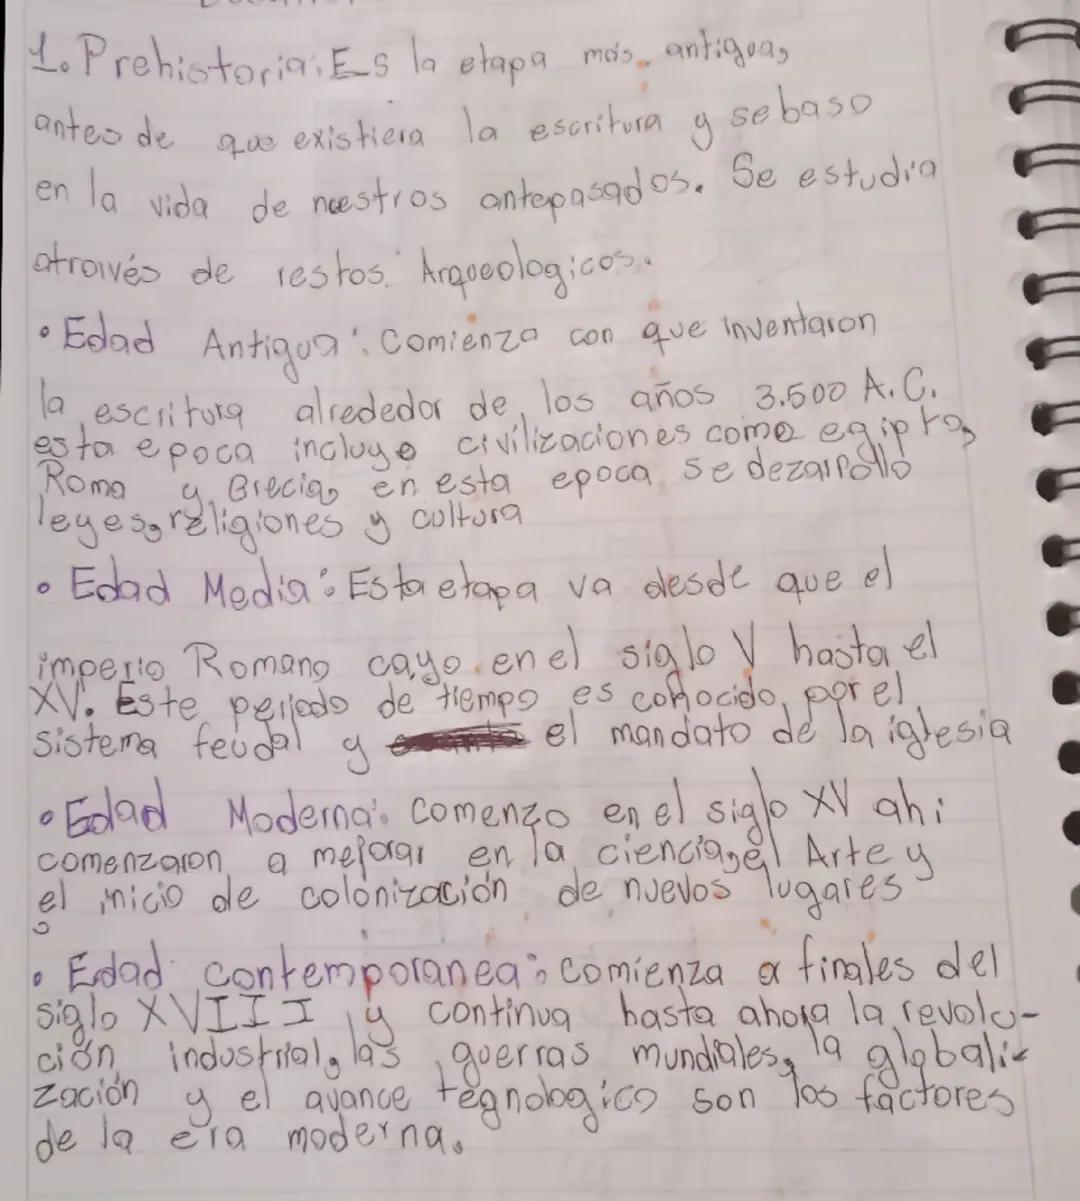 1. Prehistoria: Es la etapa más antigua,
antes de que existiera la escritura y se baso
en la vida de nuestros antepasados. Se estudia
através de restos Arqueologicos.
• Edad Antigua: Comienza con que inventaron
la escritura alrededor de los años 3.500 A.C.
esta epoca incluye civilizaciones como egipto,
Roma y Grecia, en esta epoca se dezarrollo
leyes, religiones y cultura
• Edad Media: Esta etapa va desde que el
imperio Romano cayo en el siglo V hasta el
XV. Este periodo de tiempo es conocido por el
sistema feudal y el mandato de la iglesia
• Edad Moderna: Comenzo en el siglo XV ahi
comenzaron a mejorar en la ciencia, el Arte y
el inicio de colonización de nuevos lugares
• Edad contemporanea: comienza a finales del
siglo XVIII y continua hasta ahora la revolu-
ción industrial, las guerras mundiales, la globali-
zación y el avance tegnologico son los factores
de la era moderna.